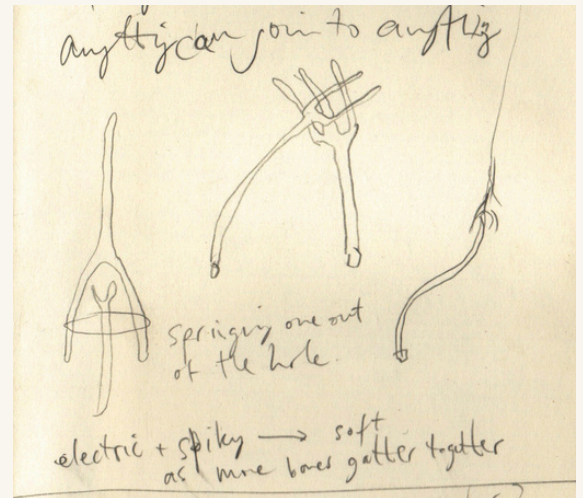 anything can join to anything
springing one out
of the hole.
electric + spiky → soft
as more bones gather together